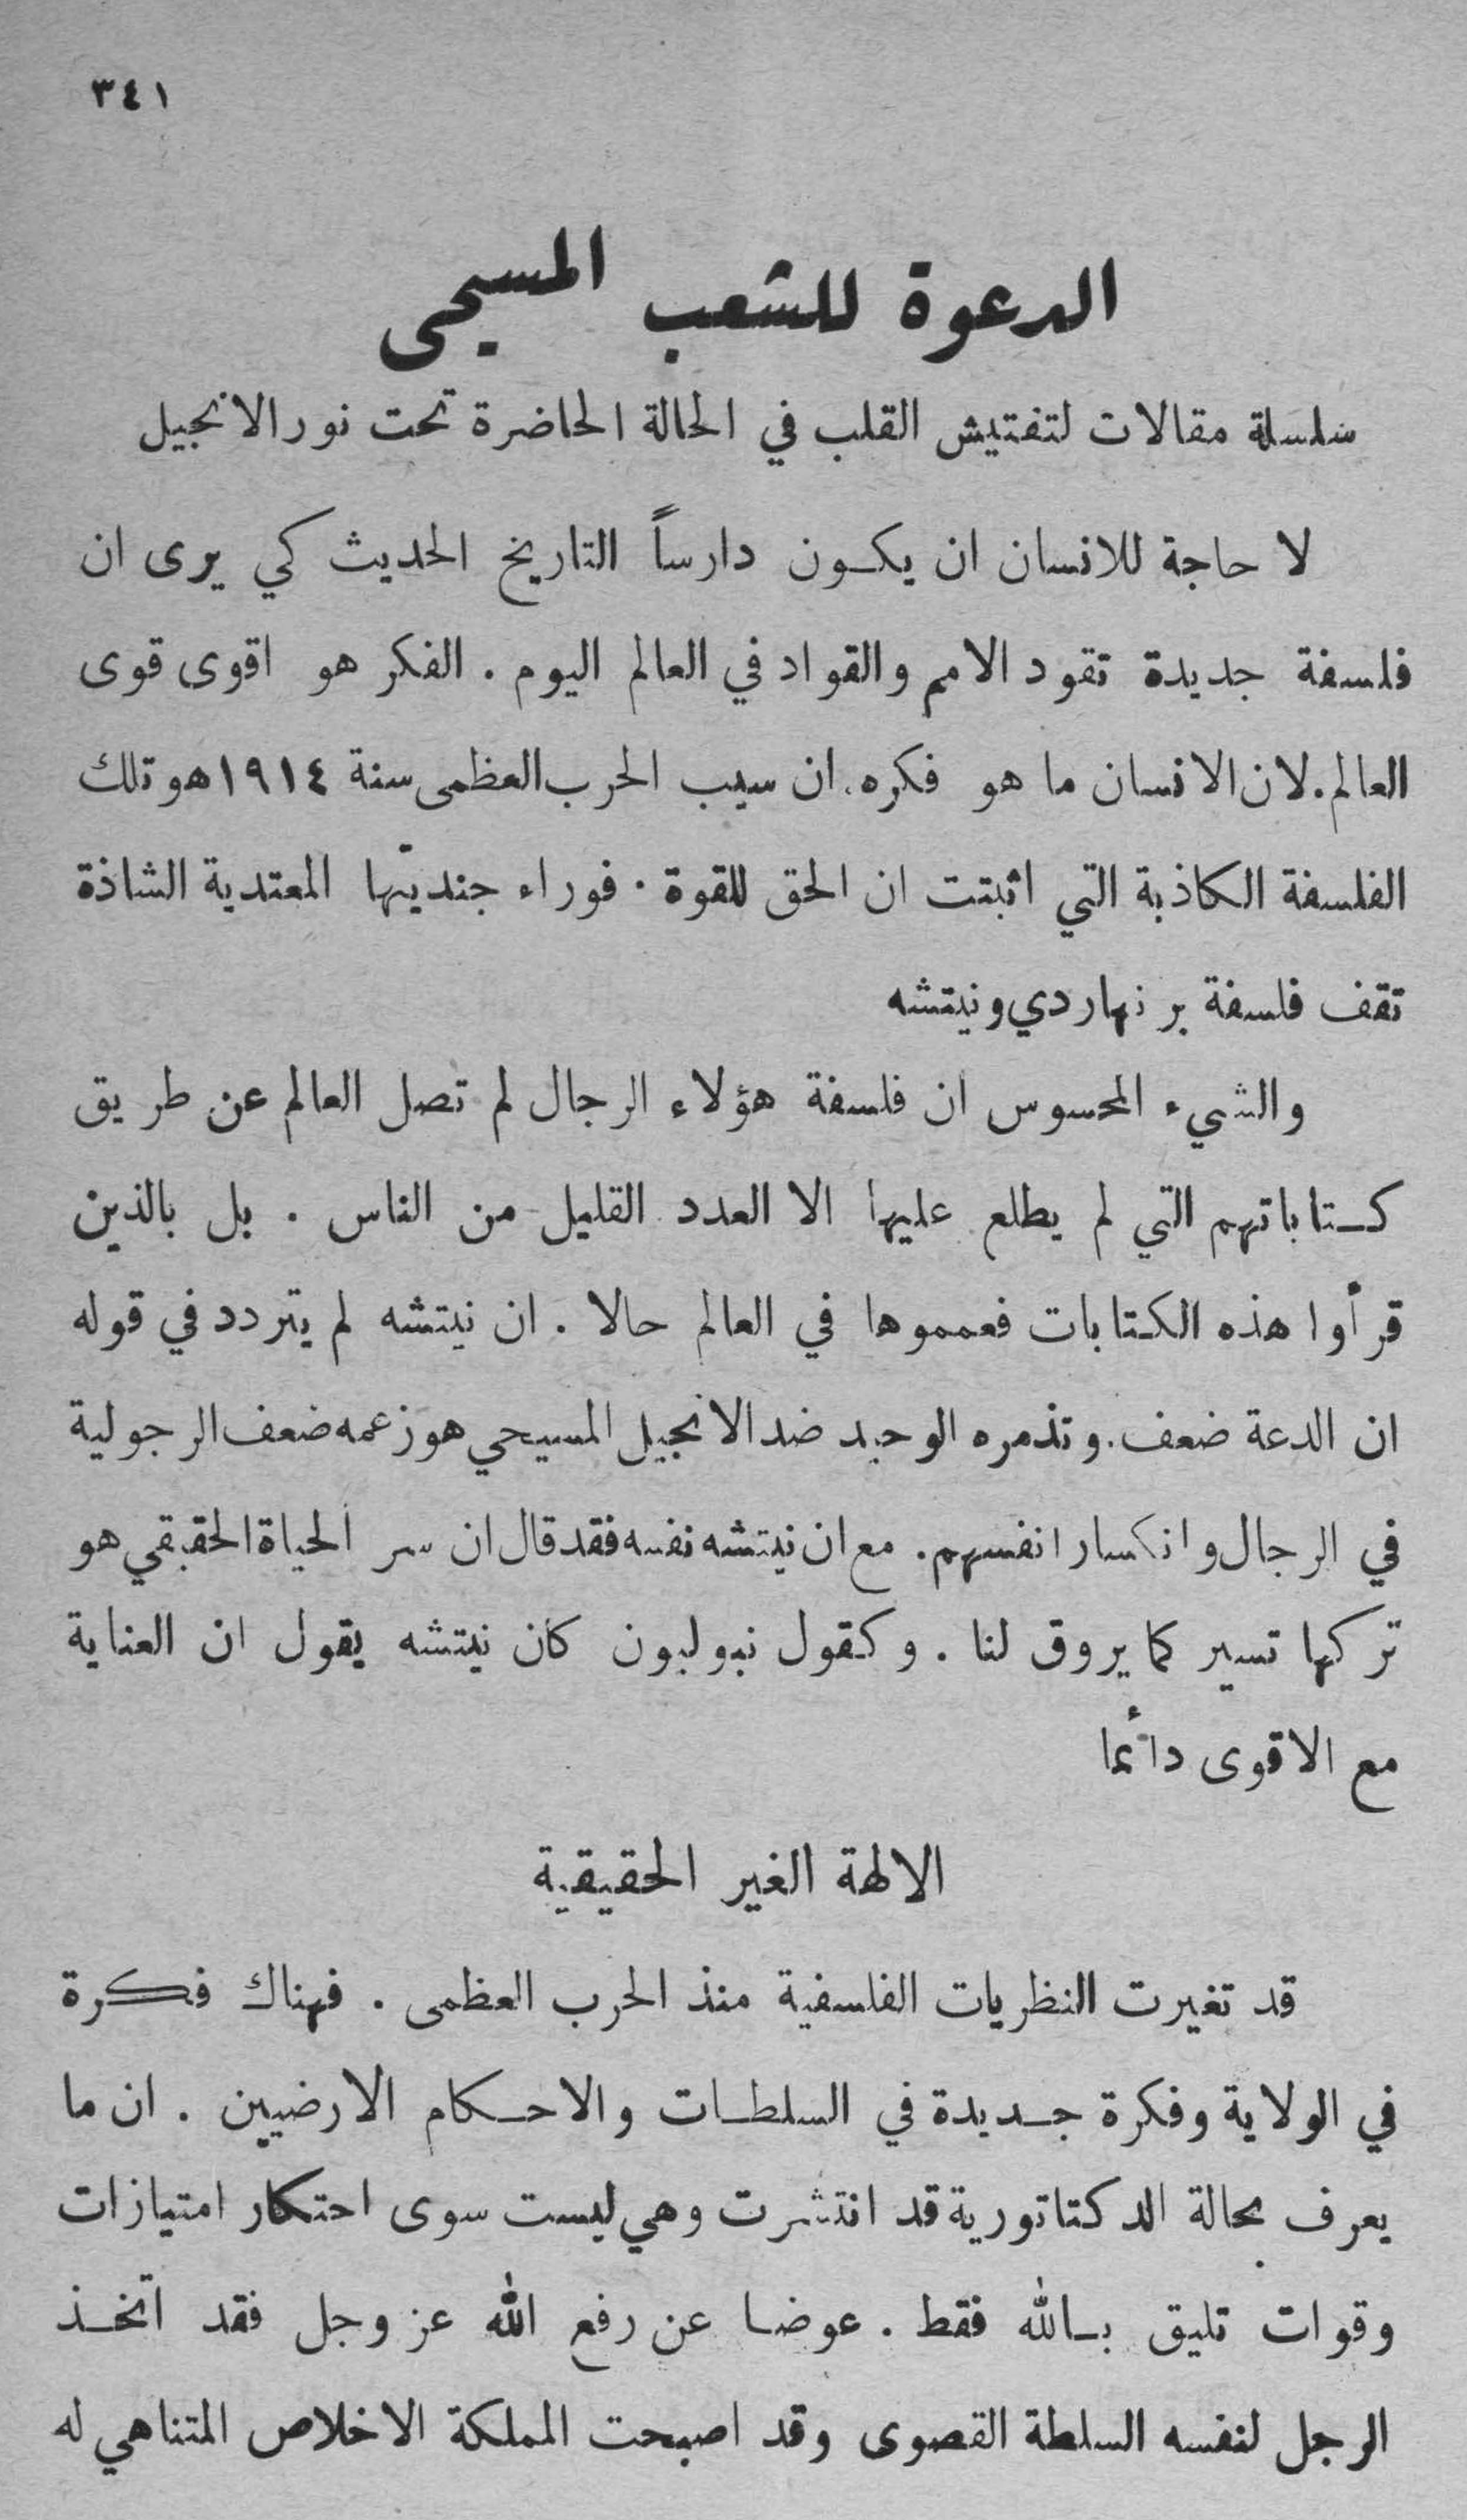 ٣٤١
الدعوة للشعب المسيحي
سلسلة مقالات لتفتيش القلب في الحالة الحاضرة تحت نور الانجيل
لا حاجة للانسان ان يكون دارساً التاريخ الحديث كي يرى ان
فلسفة جديدة تقود الامم والقواد في العالم اليوم . الفكر هو اقوى قوى
العالم. لان الانسان ما هو فكره. ان سبب الحرب العظمى سنة ١٩١٤ هو تلك
الفلسفة الكاذبة التي اثبتت ان الحق للقوة . فوراء جنديّتها المعتدية الشاذة
تقف فلسفة برنهاردي ونيتشه
والشيء المحسوس ان فلسفة هؤلاء الرجال لم تصل العالم عن طريق
كتاباتهم التي لم يطلع عليها الا العدد القليل من الناس . بل بالذين
قرأوا هذه الكتابات فعمموها في العالم حالا . ان نيتشه لم يتردد في قوله
ان الدعة ضعف. وتذمره الوحيد ضد الانجيل المسيحي هو زعمه ضعف الرجولية
في الرجال وانكسار انفسهم. مع ان نيتشه نفسه فقد قال ان سر الحياة الحقيقي هو
تركها تسير كما يروق لنا . وكقول نبوليون كان نيتشه يقول ان العناية
مع الاقوى دائما
الالهة الغير الحقيقية
قد تغيرت النظريات الفلسفية منذ الحرب العظمى . فهناك فكرة
في الولاية وفكرة جديدة في السلطات والاحكام الارضيين . ان ما
يعرف بحالة الدكتاتورية قد انتشرت وهي ليست سوى احتكار امتيازات
وقوات تليق بالله فقط . عوضا عن رفع الله عز وجل فقد اتخذ
الرجل لنفسه السلطة القصوى وقد اصبحت المملكة الاخلاص المتناهي له